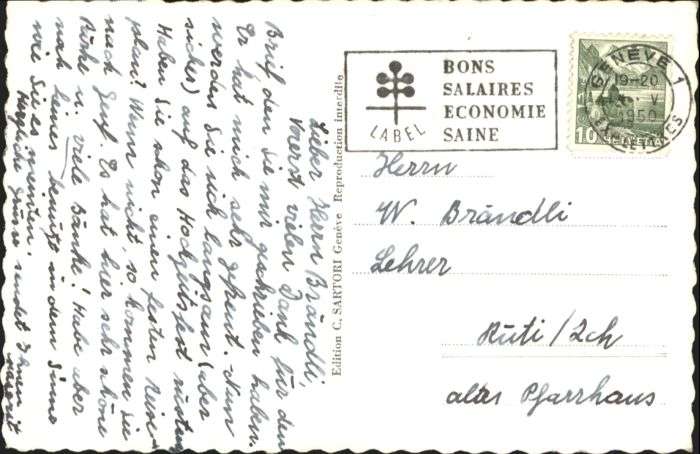 Lieber Herr Brändli,
Vorerst vielen Dank für den
Brief, den Sie mir geschrieben haben.
Er hat mich sehr gefreut. Nun
werden Sie sich langsam (aber
sicher) auf das Hochzeitsfest rüsten.
Haben Sie schon einen festen Reise-
plan? Wenn nicht, so kommen Sie
nach Genf. Es hat hier sehr schöne
Bühe u. viele Bänke! Habe aber
noch keines benützt in dem Sinne
wie Sie es meinten.
Herzliche Grüsse sendet Ihnen
Edition C. SARTORI Genève Reproduction interdite
LABEL
BONS
SALAIRES
ECONOMIE
SAINE
GENÈVE 1
19-20
V
1950
10
HELVETIA
Herrn
W. Brändli
Lehrer
Rüti / Zch
altes Pfarrhaus